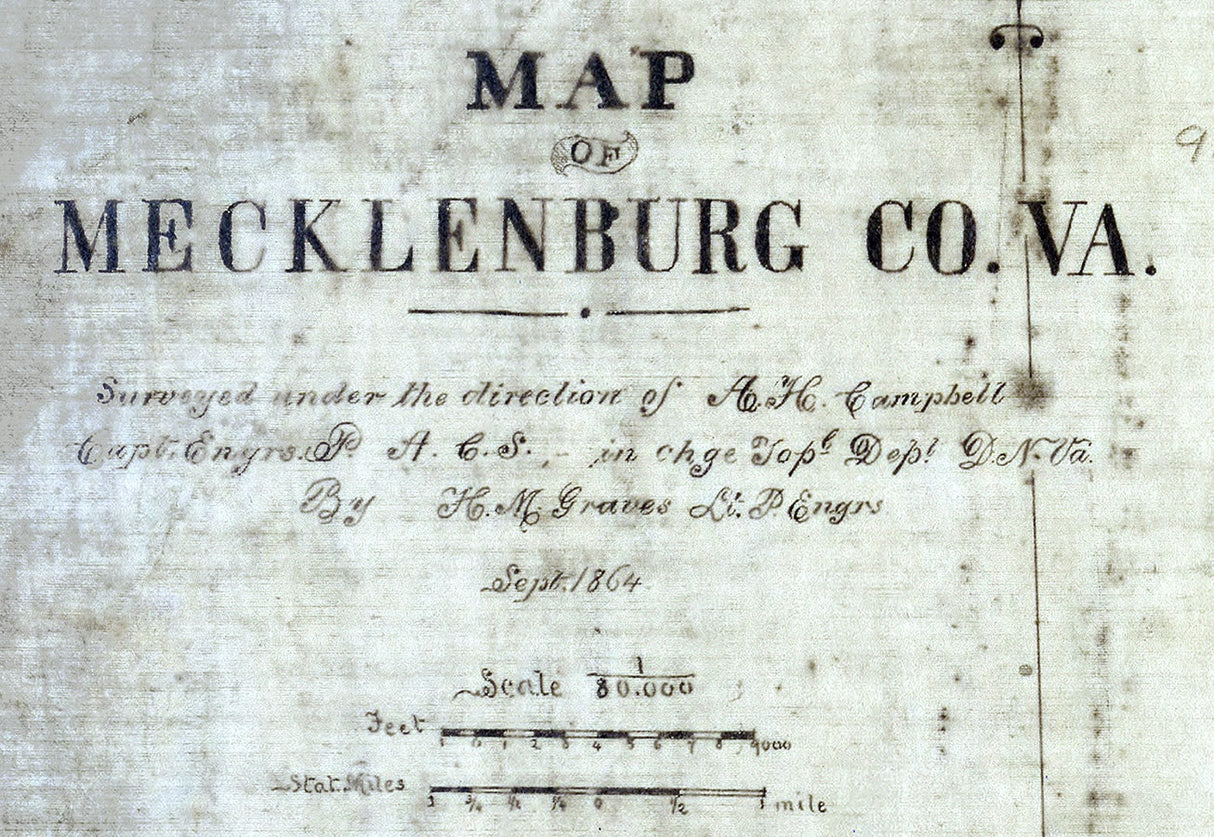 MAP
OF
MECKLENBURG CO. VA.
Surveyed under the direction of A. H. Campbell
Capt. Engrs. P. A. C. S. in chge Topl. Dept. D. N. Va.
By H. M. Graves Lt. P. Engrs
Sept. 1864
Scale 1/80.000
Feet 1 0 1 2 3 4 5 6 7 8 9000
Stat. Miles 1 3/4 1/2 1/4 0 1/2 1 mile
9